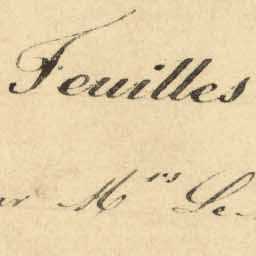 Feuilles
Mrs